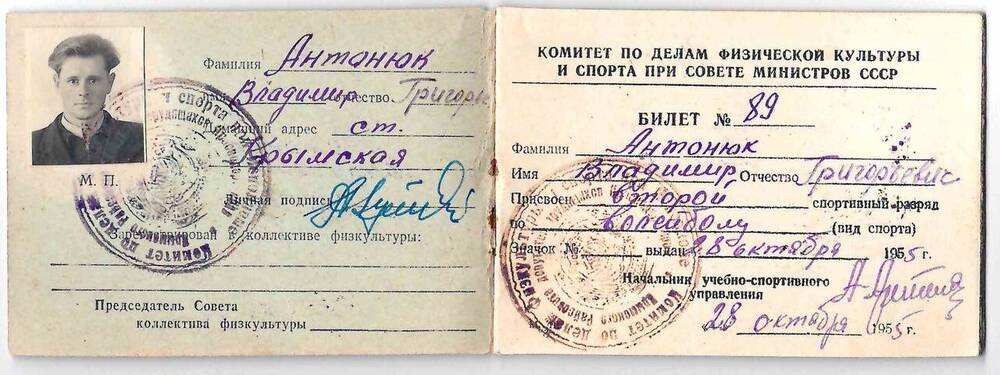 Фамилия Антонюк
Владимир Отчество Григорь
Домашний адрес ст.
Крымская
М. П.
Личная подпись
Зарегистрирован в коллективе физкультуры:
Председатель Совета
коллектива физкультуры
КОМИТЕТ ПО ДЕЛАМ ФИЗИЧЕСКОЙ КУЛЬТУРЫ
И СПОРТА ПРИ СОВЕТЕ МИНИСТРОВ СССР
БИЛЕТ № 89
Фамилия Антонюк
Имя Владимир Отчество Григорьевич
Присвоен второй спортивный разряд
по волейболу (вид спорта)
Значок № выдан 28 октября 1955 г.
Начальник учебно-спортивного
управления
28 октября 1955 г.